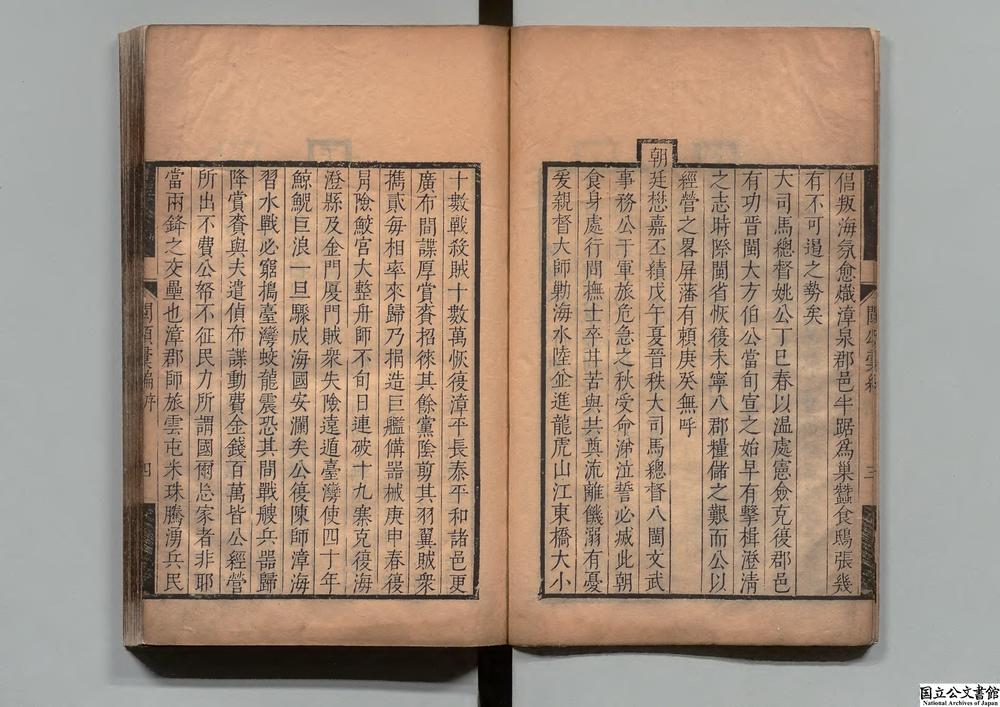 倡叛海氛愈熾漳泉郡邑半踞爲巢蠶食鴟張幾
有不可遏之勢矣
大司馬總督姚公丁巳春以溫處憲僉克復郡邑
有功晉閩大方伯公當旬宣之始早有擊楫澄淸
之志時際閩省恢復未寧八郡糧儲之艱而公以
經營之畧屏藩有賴庚癸無呼
朝廷懋嘉丕績戊午夏晉秩大司馬總督八閩文武
事務公于軍旅危急之秋受命涕泣誓必滅此朝
食身處行間撫士卒甘苦與共奠流離饑溺有憂
爰親督大師勦海水陸並進龍虎山江東橋大小
閩頌彙編
三
十數戰殺賊十數萬恢復漳平長泰平和諸邑更
廣布間諜厚賞賚招徠其餘黨陰剪其羽翼賊衆
攜貳每相率來歸乃捐造巨艦備器械庚申春復
冐險鮫宮大整舟師不旬日連破十九寨克復海
澄縣及金門厦門賊衆失險遠遁臺灣使四十年
鯨鯢巨浪一旦驟成海國安瀾矣公復陳師漳海
習水戰必窮搗臺灣蛟龍震恐其間戰艘兵器歸
降賞賚與夫遣偵布諜動費金錢百萬皆公經營
所出不費公帑不征民力所謂國爾忘家者非耶
當兩鋒之交壘也漳郡師旅雲屯米珠騰湧兵民
閩頌彙編 序
四
国立公文書館
National Archives of Japan